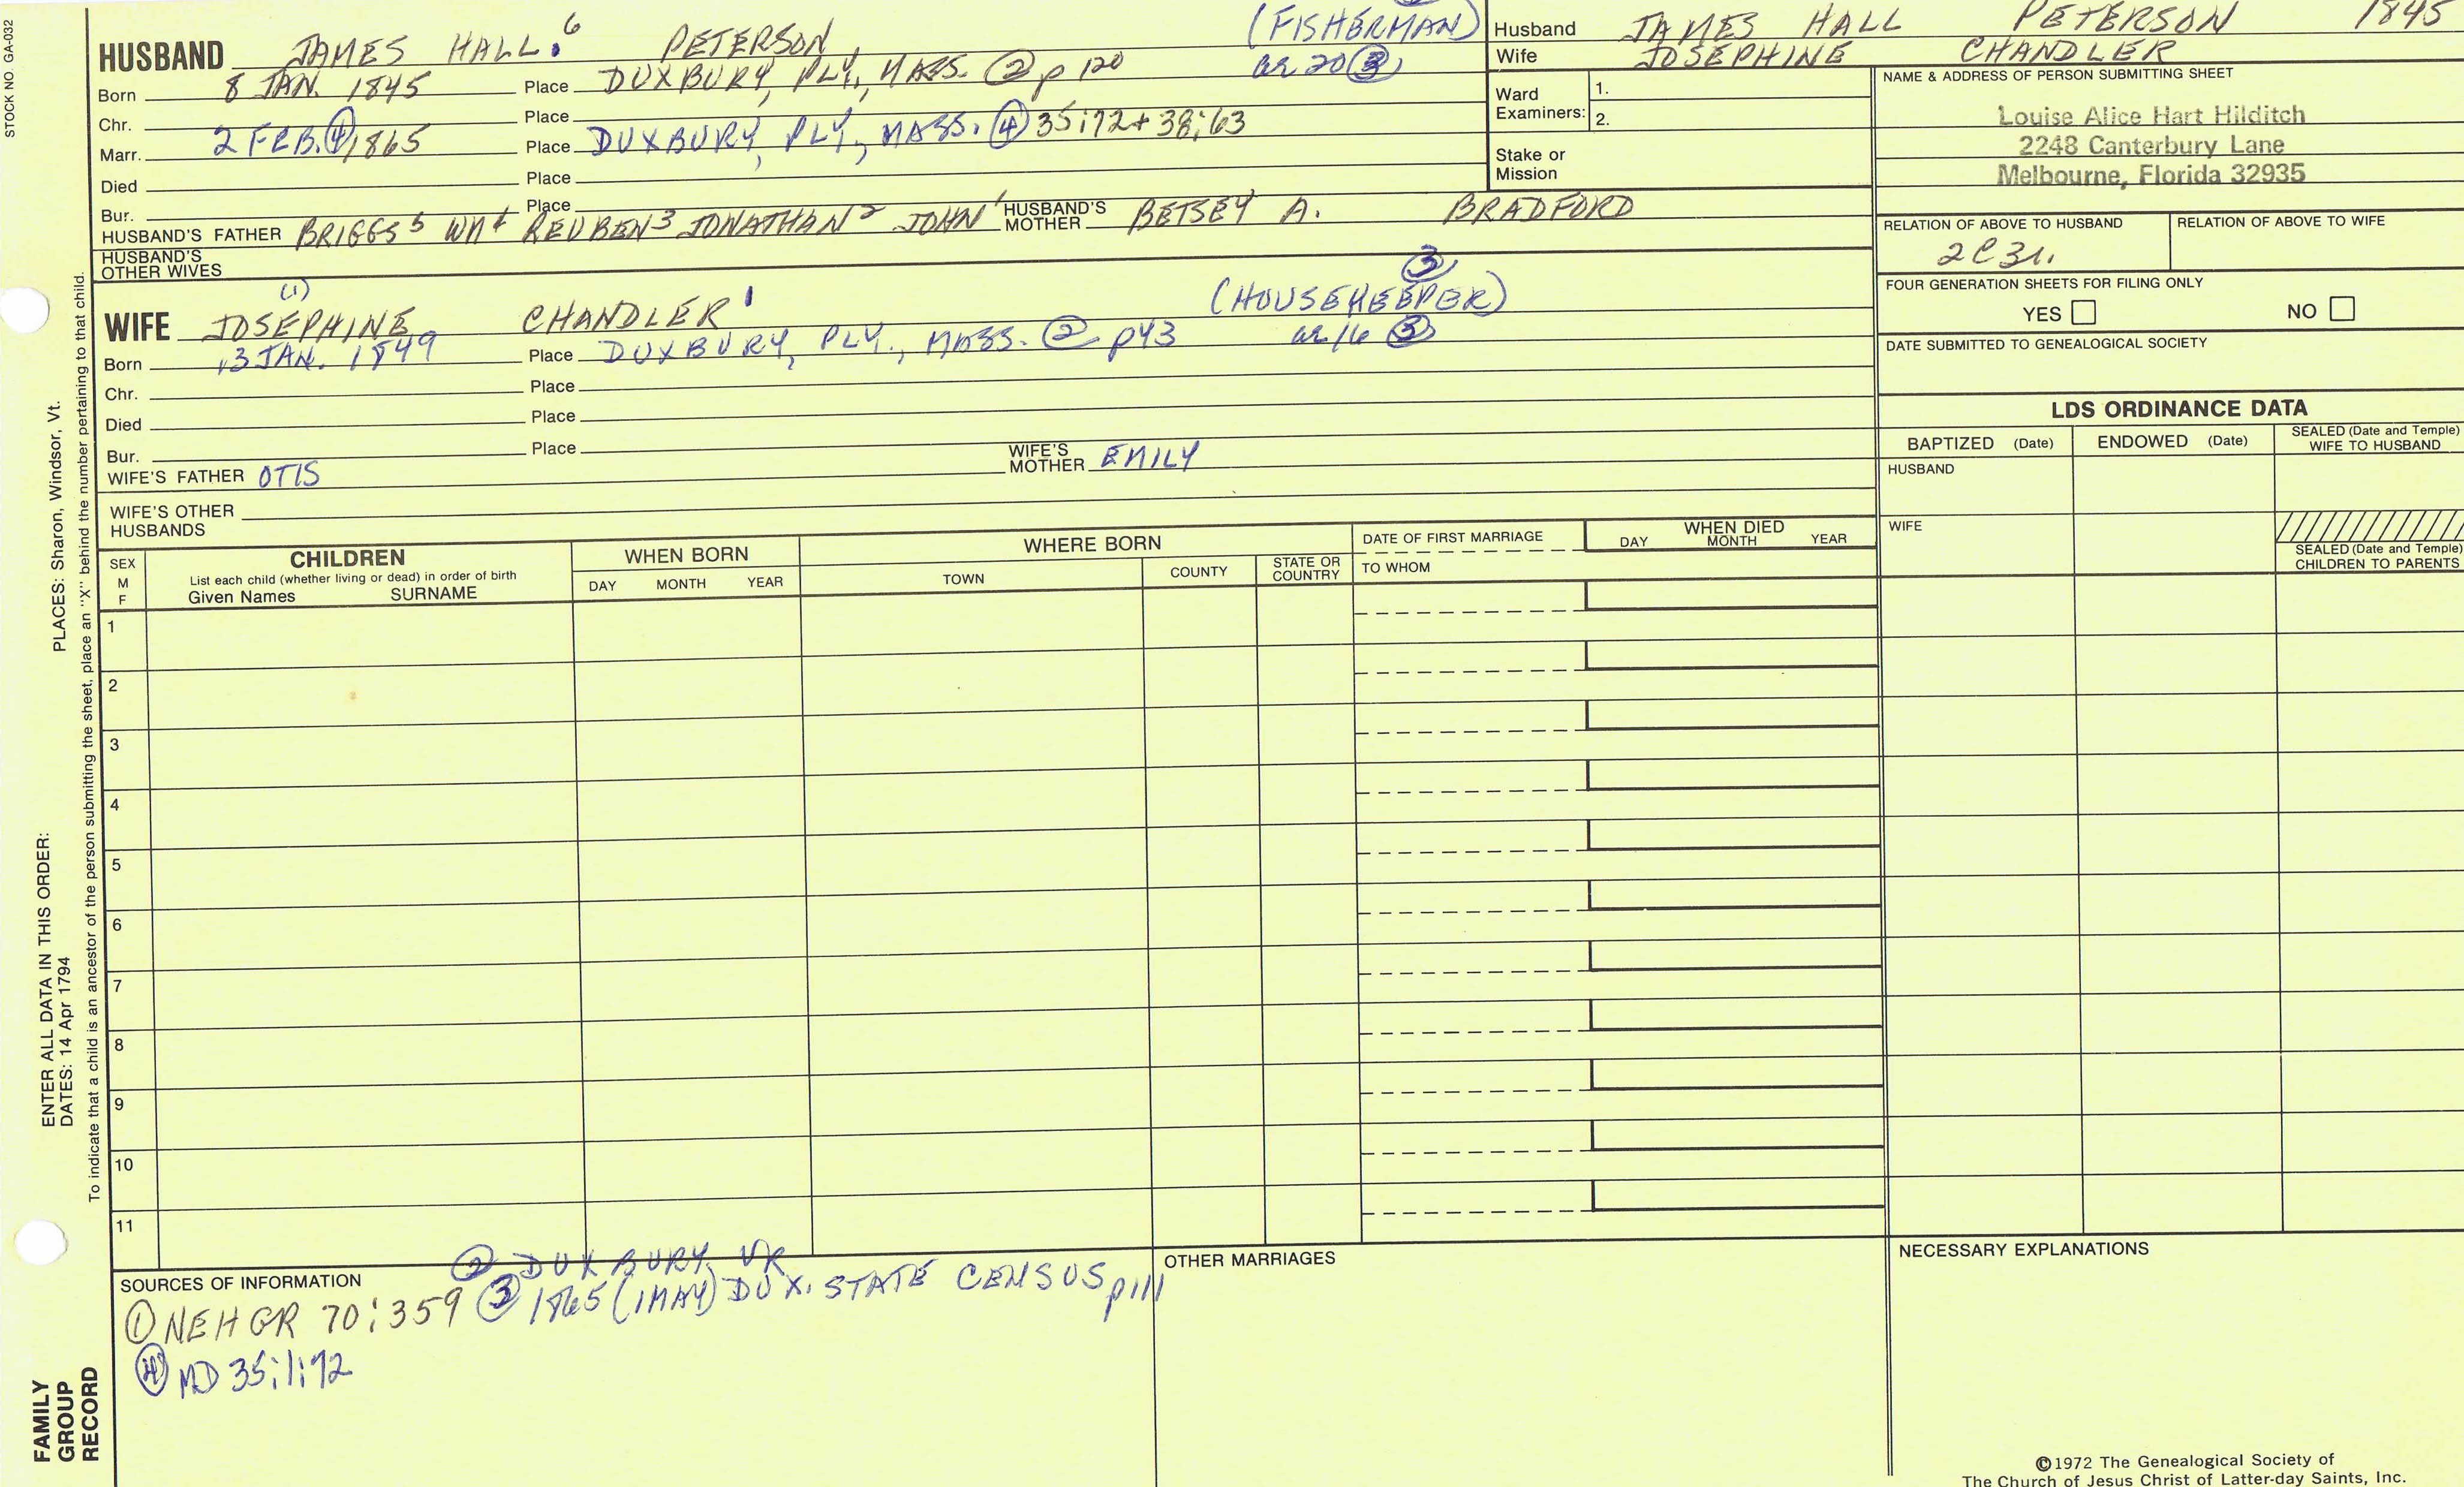 STOCK NO. GA-032
HUSBAND JAMES HALL 6 PETERSON (FISHERMAN)
Born 8 JAN. 1845 Place DUXBURY, PLY., MASS. ② p 120 ae 20 ③
Chr. Place
Marr. 2 FEB. ④ 1865 Place DUXBURY, PLY., MASS. ④ 35:72 + 38:63
Died Place
Bur. Place
HUSBAND'S FATHER BRIGGS 5 WM 4 REUBEN 3 JONATHAN 2 JOHN 1 HUSBAND'S MOTHER BETSEY A. BRADFORD
HUSBAND'S OTHER WIVES
(1) ③
WIFE JOSEPHINE CHANDLER 1 (HOUSEKEEPER)
Born 13 JAN. 1849 Place DUXBURY, PLY., MASS. ② p43 ae 16 ③
Chr. Place
Died Place
Bur. Place
WIFE'S FATHER OTIS WIFE'S MOTHER EMILY
WIFE'S OTHER HUSBANDS
Husband JAMES HALL PETERSON 1845
Wife JOSEPHINE CHANDLER
Ward Examiners: 1.
2.
Stake or Mission
NAME & ADDRESS OF PERSON SUBMITTING SHEET
Louise Alice Hart Hilditch
2248 Canterbury Lane
Melbourne, Florida 32935
RELATION OF ABOVE TO HUSBAND RELATION OF ABOVE TO WIFE
2C3r.
FOUR GENERATION SHEETS FOR FILING ONLY
YES NO
DATE SUBMITTED TO GENEALOGICAL SOCIETY
LDS ORDINANCE DATA
BAPTIZED (Date) ENDOWED (Date) SEALED (Date and Temple) WIFE TO HUSBAND
HUSBAND
WIFE
SEALED (Date and Temple) CHILDREN TO PARENTS
SEX M F
CHILDREN
List each child (whether living or dead) in order of birth
Given Names SURNAME
WHEN BORN
DAY MONTH YEAR
WHERE BORN
TOWN COUNTY STATE OR COUNTRY
DATE OF FIRST MARRIAGE
TO WHOM
WHEN DIED
DAY MONTH YEAR
1
2
3
4
5
6
7
8
9
10
11
SOURCES OF INFORMATION ② DUXBURY VR
① NEHGR 70:359 ③ 1865 (1MAY) DUX. STATE CENSUS p111
④ MD 35:1:72
OTHER MARRIAGES
NECESSARY EXPLANATIONS
©1972 The Genealogical Society of
The Church of Jesus Christ of Latter-day Saints, Inc.
PLACES: Sharon, Windsor, Vt.
ENTER ALL DATA IN THIS ORDER:
DATES: 14 Apr 1794
To indicate that a child is an ancestor of the person submitting the sheet, place an "X" behind the number pertaining to that child.
FAMILY
GROUP
RECORD